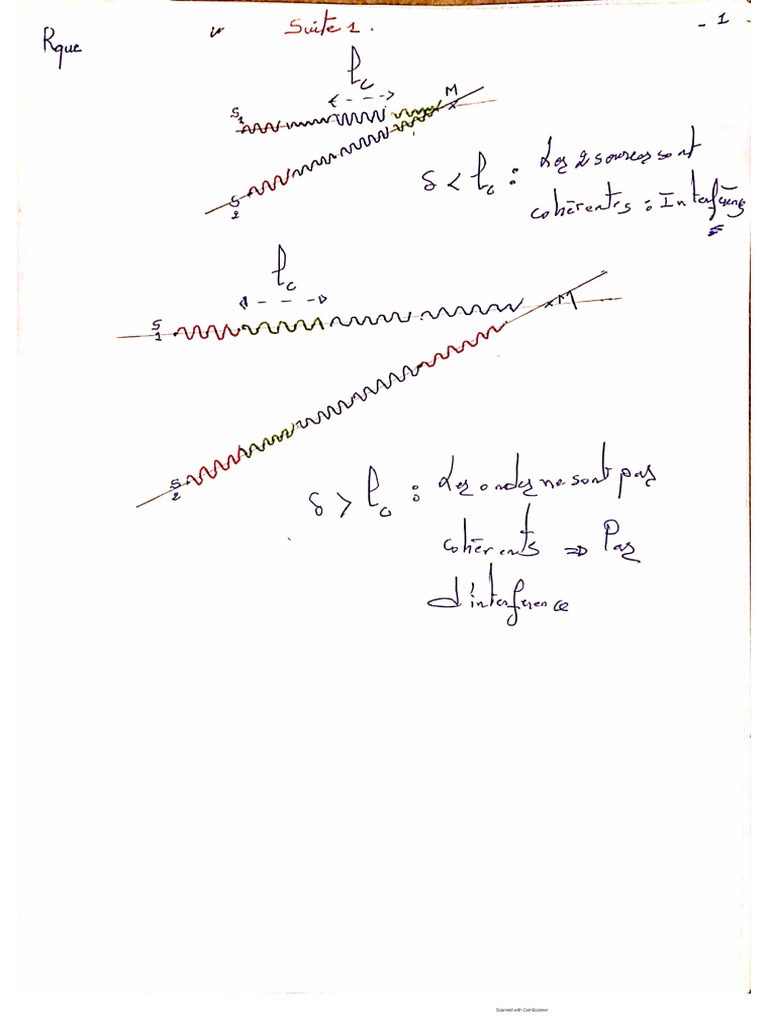 Suite 1.
- 1 -
Rque
lc
S1
M
S2
δ < lc : Les 2 sources sont
cohérentes : Interférens
lc
S1
M
S2
δ > lc : Les ondes ne sont pas
cohérents ⇒ Pas
d'interference
Scanned with CamScanner